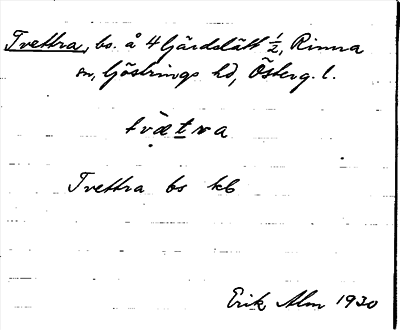 Tvettra, bs. å 4 Gärdslätt 1/2, Rinna
sn, Göstrings hd, Österg. l.
tvætra
Tvettra bs kb
Erik Alm 1930